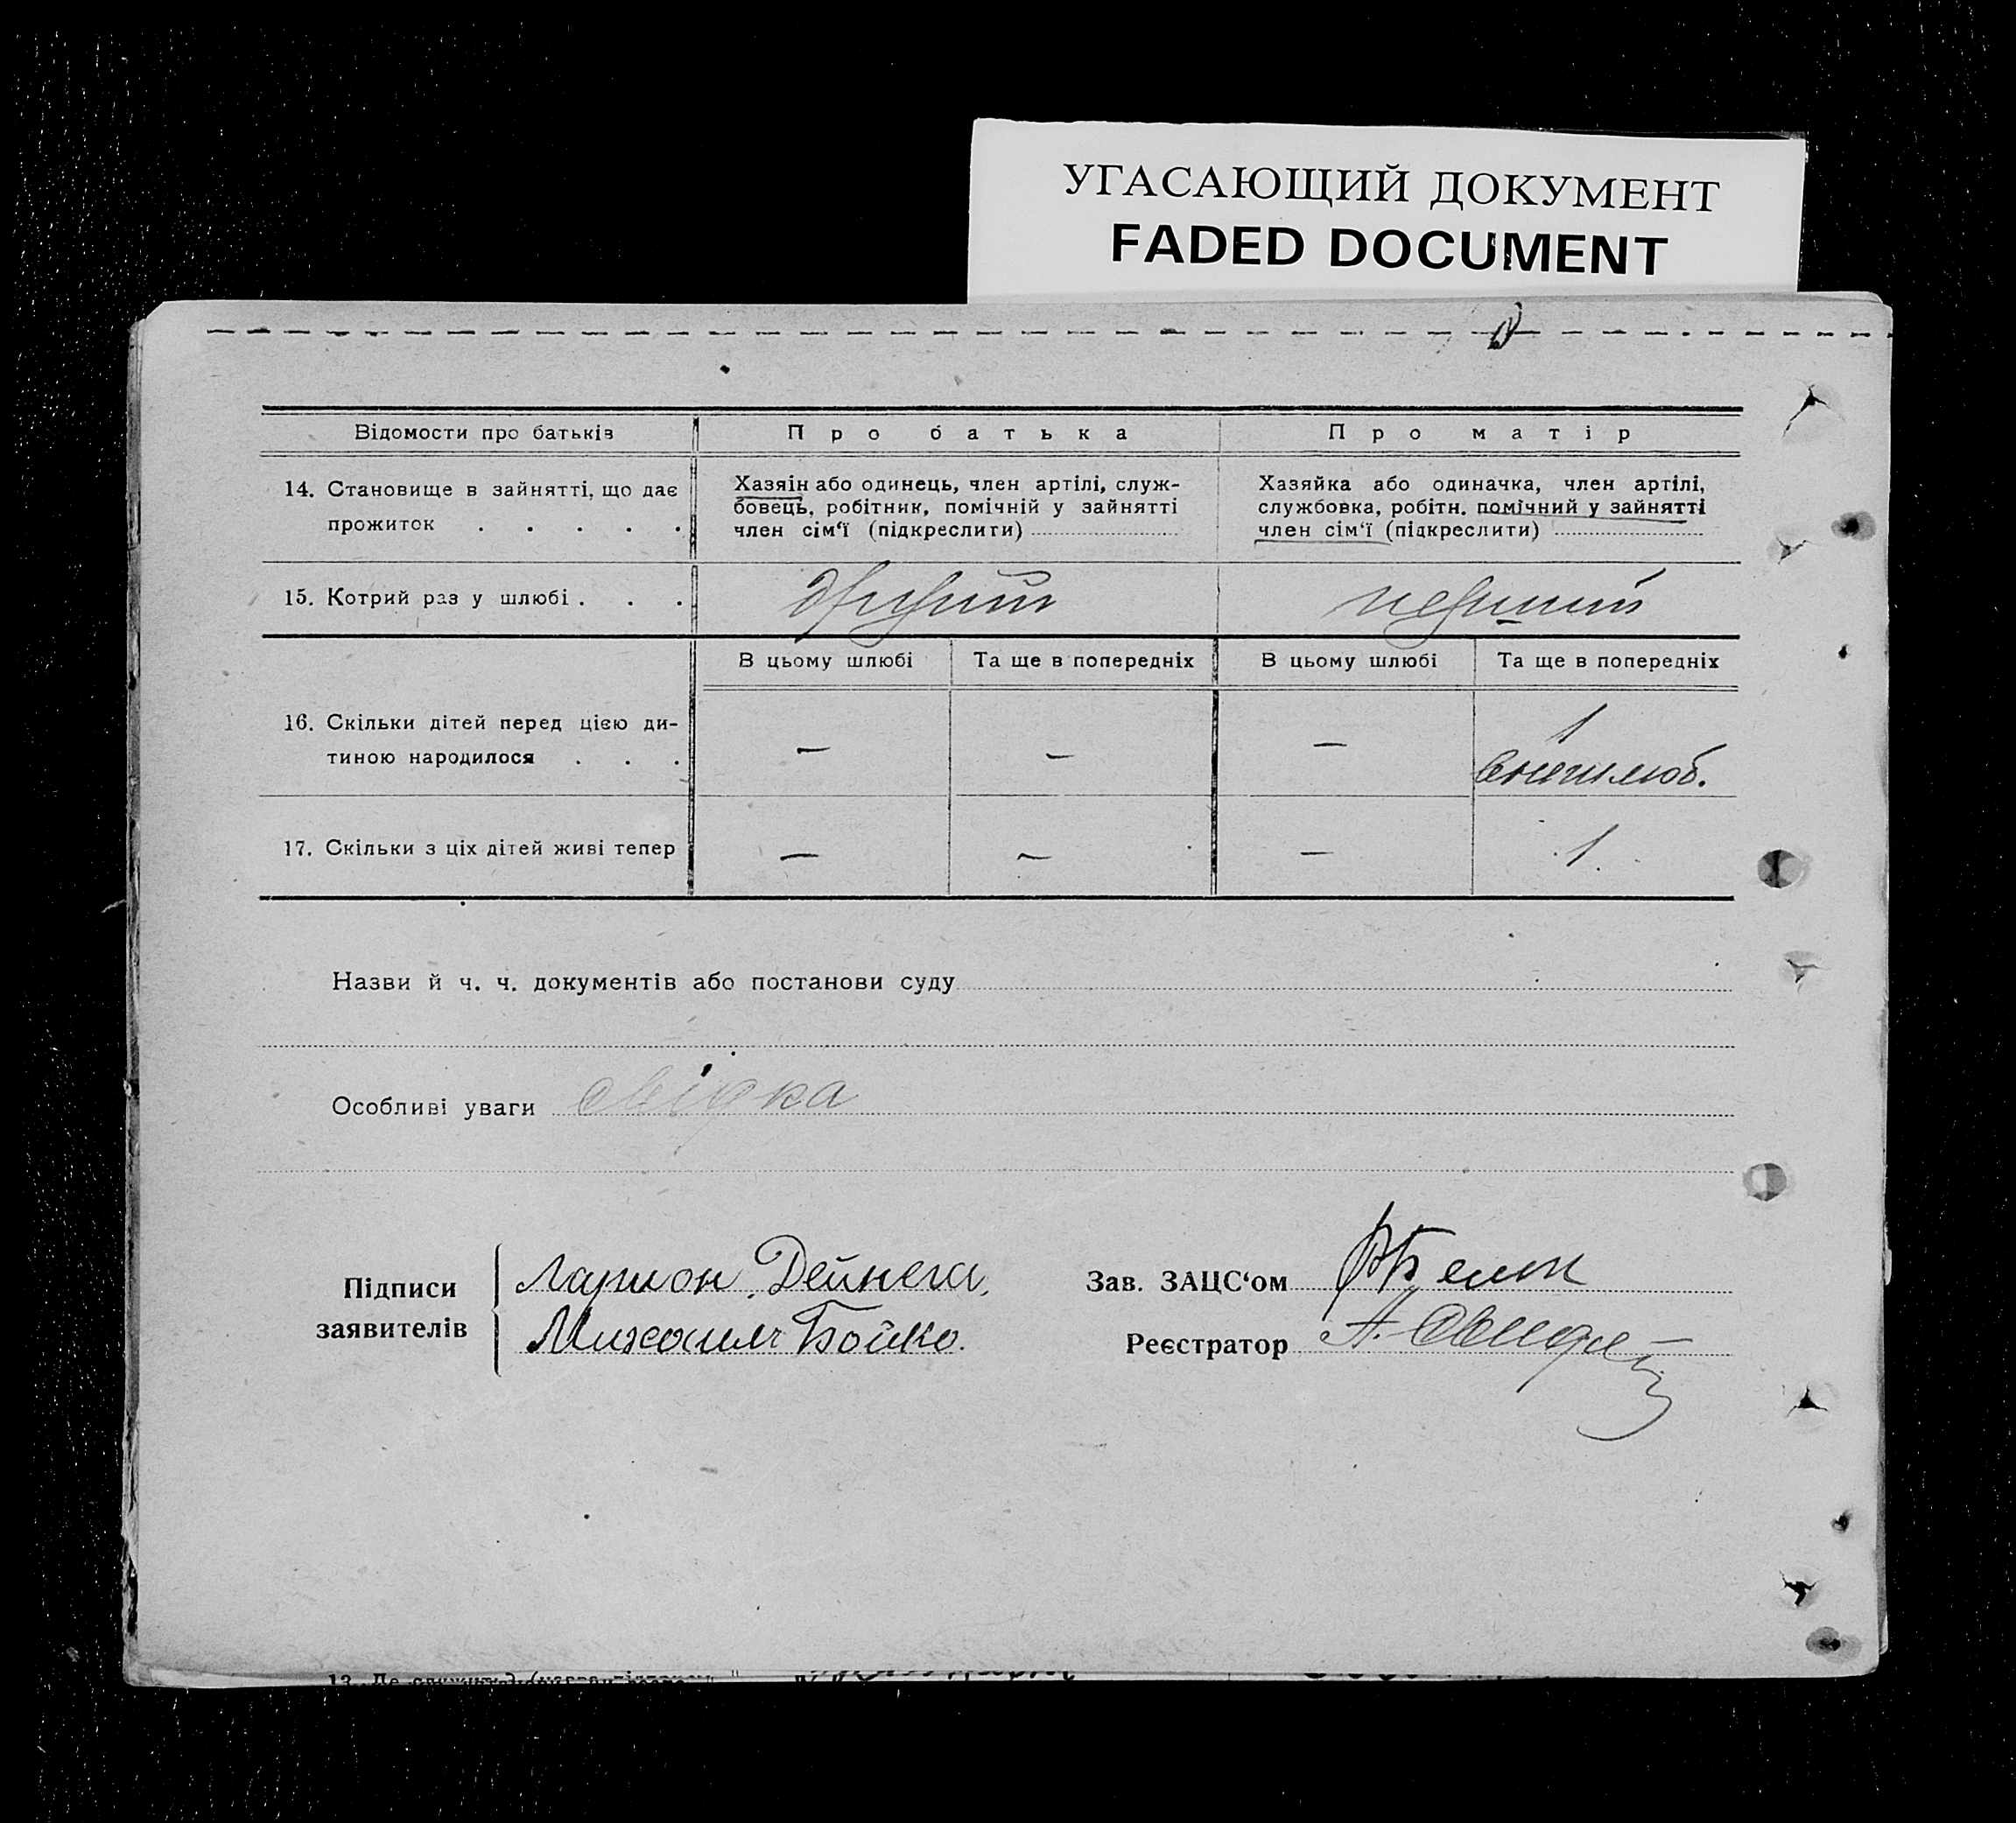 УГАСАЮЩИЙ ДОКУМЕНТ
FADED DOCUMENT
Відомости про батьків
Про батька
Про матір
14. Становище в зайнятті, що дає
прожиток . . . . .
Хазяін або одинець, член артілі, служ-
бовець, робітник, помічній у зайнятті
член сім‘ї (підкреслити)
Хазяйка або одиначка, член артілі,
службовка, робітн. помічний у зайнятті
член сім‘ї (підкреслити)
15. Котрий раз у шлюбі . . .
другий
перший
В цьому шлюбі
Та ще в попередніх
В цьому шлюбі
Та ще в попередніх
16. Скільки дітей перед цією ди-
тиною народилося . . .
—
—
—
1
внешлюб.
17. Скільки з ціх дітей живі тепер
—
—
—
1
Назви й ч. ч. документів або постанови суду
Особливі уваги свідка
Підписи
заявителів
Ларион Дейнега,
Михаил Бойко.
Зав. ЗАЦС‘ом
Реєстратор А.